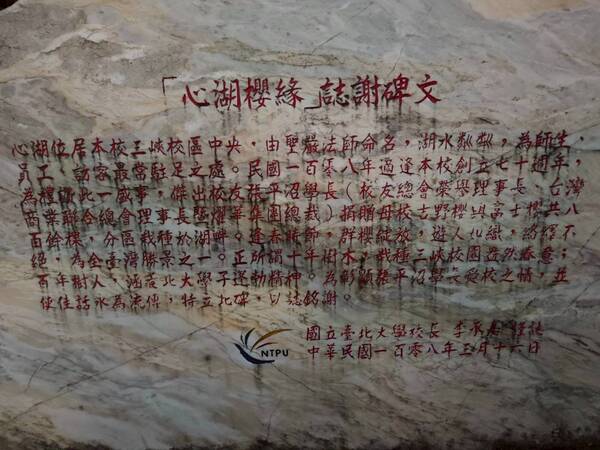 「心湖櫻緣」誌謝碑文
心湖位居本校三峽校區中央，由聖嚴法師命名，湖水粼粼，為師生
員工、訪客最常駐足之處。民國一百零八年適逢本校創立七十週年，
為禮此一盛事，傑出校友張平沼學長（校友總會榮譽理事長、台灣
商業聯合總會理事長暨燿華集團總裁）捐贈母校吉野櫻與富士櫻共八
百餘棵，分區栽種於湖畔。逢春時節，群櫻綻放，遊人如織，絡繹不
絕，為全臺灣勝景之一。正所謂十年樹木，栽種三峽校園盎然春意；
百年樹人，涵養北大學子運動精神。為彰顯張平沼學長愛校之情，並
使佳話永為流傳，特立此碑，以誌銘謝。
國立臺北大學校長 李承嘉 謹誌
中華民國一百零八年三月十六日
NTPU